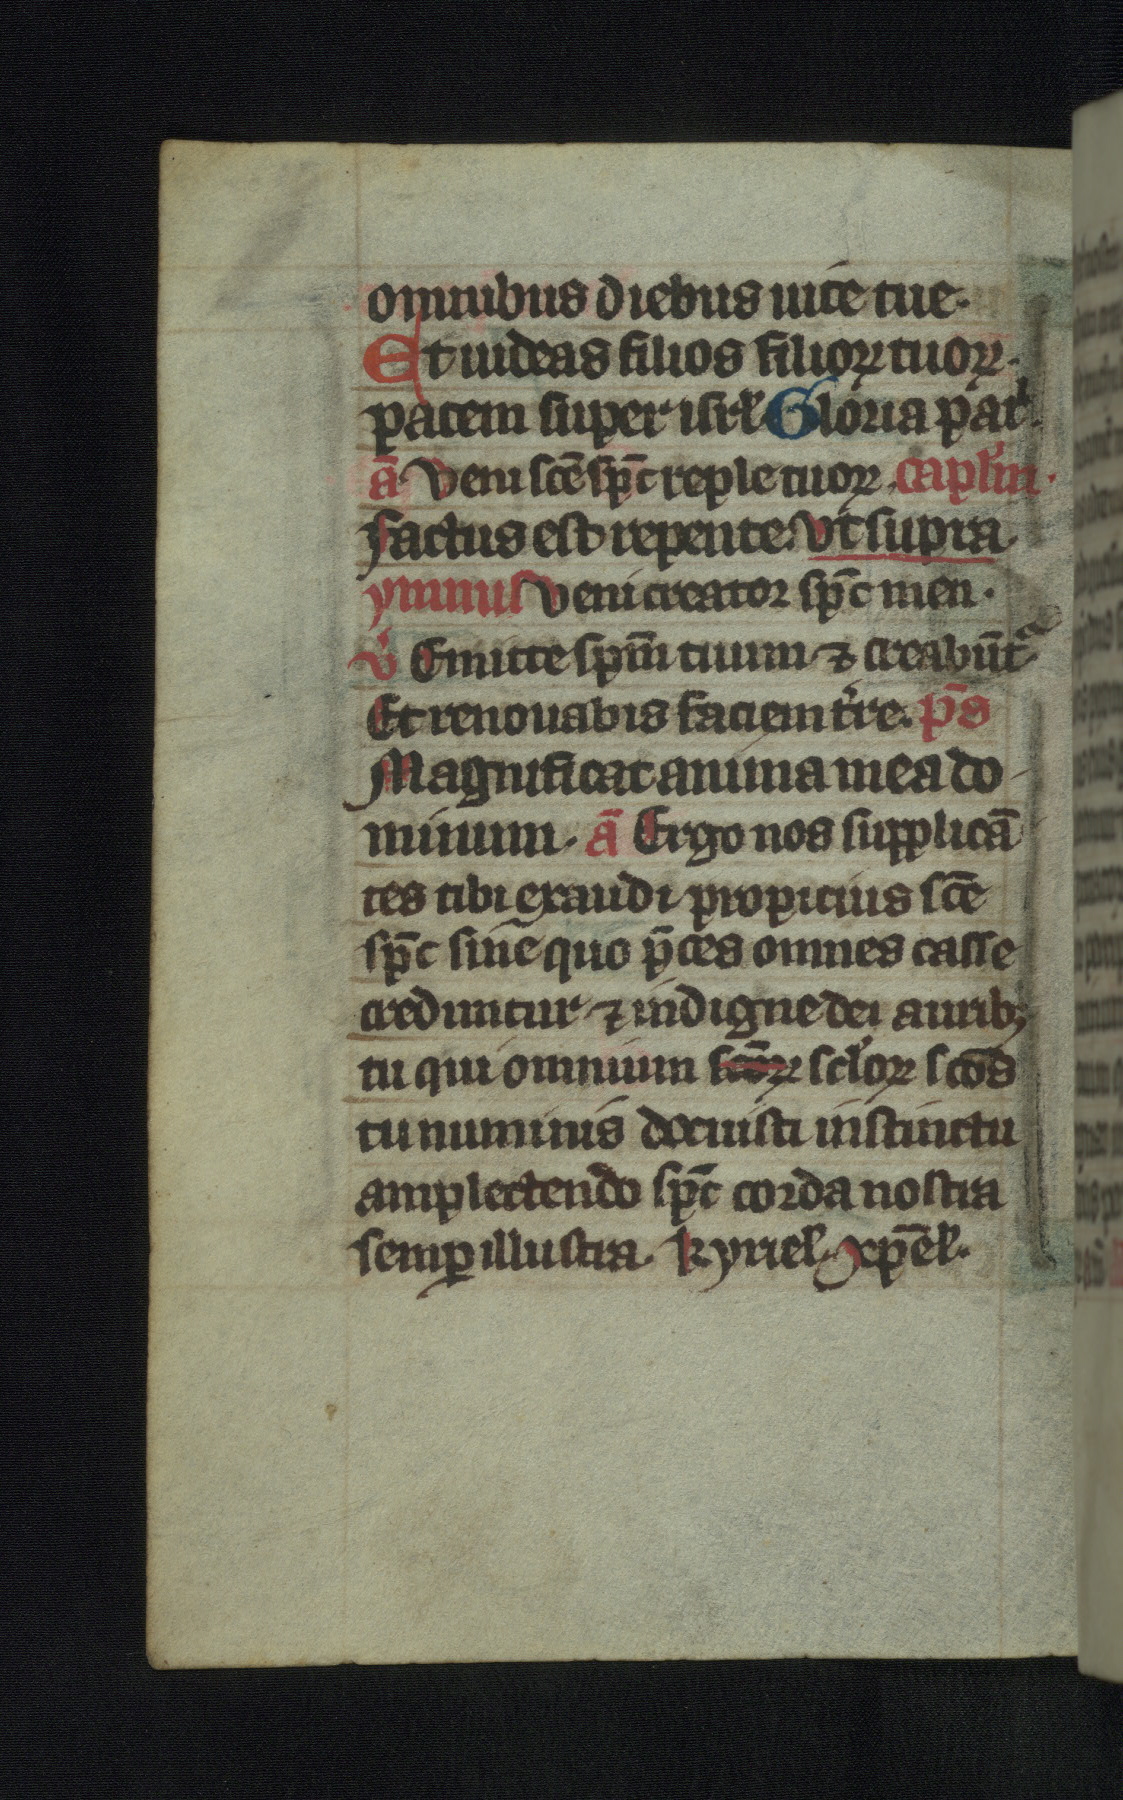 omnibus diebus uite tue.
Et uideas filios filioꝝ tuoꝝ.
pacem super isrł Gloria patͥ.
ā. Veni sc̄e sp̄c reple tuoꝝ. caplm̄.
Factus est repente. vt supra
ymnus Veni creator sp̄c men.
v̊ Emitte spm̄ tuum ⁊ creabūtͣ
Et renouabis faciem t̄re. p̄s
Magnificat anima mea do
minum. ā Ergo nos supplicā
tes tibi exaudi propicius sc̄e
sp̄c sine quo p̄ces omnes casse
creduntur ⁊ indigne dei auribꝫ
tu qui omnium sc̄oꝝ scł'oꝝ sc̄os
tu numinis docuisti instinctu
amplectendo sp̄c corda nostra
semꝑ illustra. kyrieł. xp̄eł.